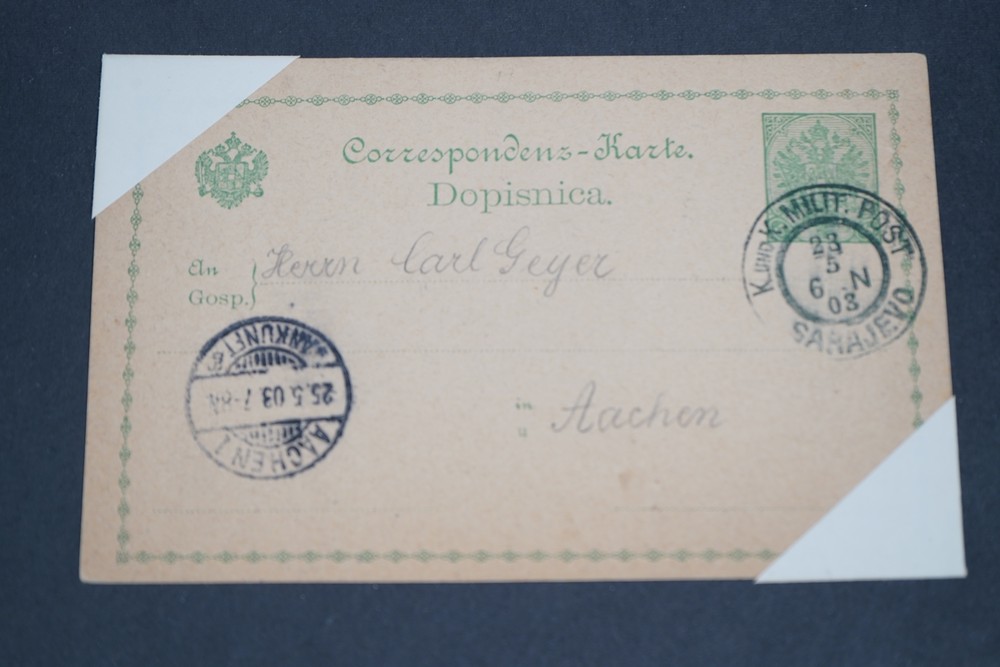 Correspondenz-Karte.
Dopisnica.
An
Gosp.
Herrn Carl Geyer
in
u
Aachen
K. UND K. MILIT. POST
23
5
6 N
03
SARAJEVO
ANKUNFT
25.5.03.7-8N.
AACHEN 1